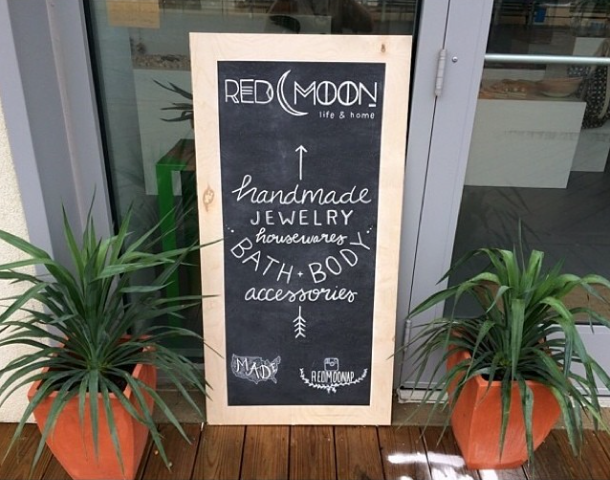 RED MOON
life & home
handmade
JEWELRY
housewares
BATH + BODY
accessories
MADE
REDMOONAP